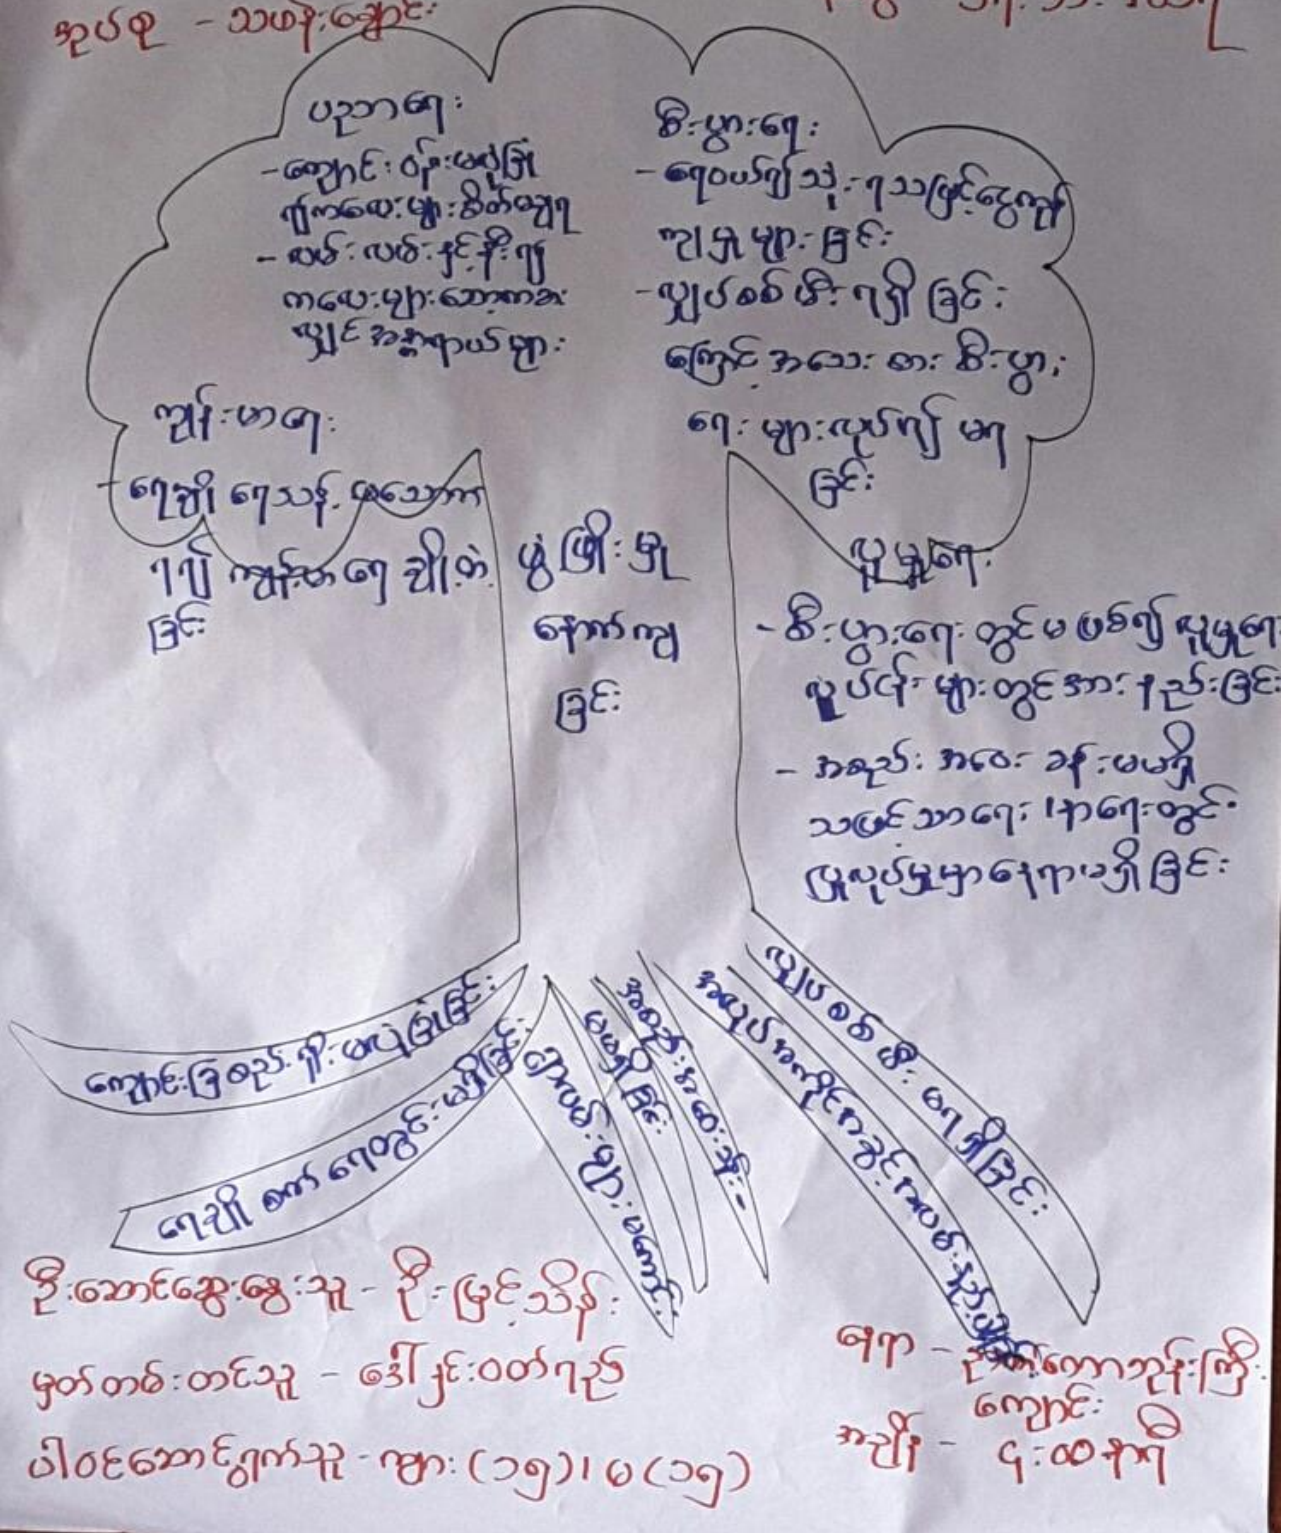 အုပ်စု - သဖန်းချောင်း
ပညာရေး
- ကျောင်းဝန်းမလုံခြုံ
၍ကလေးများစိတ်မချရ
- လမ်းနှင့်နီး၍
ကလေးများဆော့ကစား
လျှင်အန္တရာယ်များ
စီးပွားရေး
- ရေဝယ်၍သုံးရသဖြင့်ငွေကုန်
ကျမှုများခြင်း
- လျှပ်စစ်မီးရရှိခြင်း
ကြောင့်အသေးစားစီးပွား
ရေးများလုပ်၍မရ
ခြင်း
ကျန်းမာရေး
- ရေချိုရေသန့်မသောက်
ရ၍ကျန်းမာရေးချို့တဲ့
ခြင်း
ဖွံ့ဖြိုးမှု
နောက်ကျ
ခြင်း
လူမှုရေး
- စီးပွားရေးတွင်မဖြစ်၍လူမှုရေး
လုပ်ငန်းများတွင်အားနည်းခြင်း
- အစည်းအဝေးခန်းမမရှိ
သဖြင့်သာရေး၊နာရေးတွင်
ပြုလုပ်မှုမှာနေရာမရှိခြင်း
ကျောင်းခြံစည်းရိုးမလုံခြုံခြင်း
ရေချိုစက်ရေတွင်းမရှိခြင်း
လမ်းများမကောင်း
အစည်းအဝေးခန်း
မမရှိခြင်း
အလုပ်အကိုင်အခွင့်အလမ်းနည်းပါး
လျှပ်စစ်မီးမရရှိခြင်း
ဦးဆောင်ဆွေးနွေးသူ - ဦးမြင့်သိန်း
မှတ်တမ်းတင်သူ - ဒေါ်နှင်းဝတ်ရည်
ပါဝင်ဆောင်ရွက်သူ - ကျား (၁၅)၊ မ (၁၅)
နေရာ - ဘုန်းကြီး
ကျောင်း
အချိန် - ၄:၀၀ နာရီ